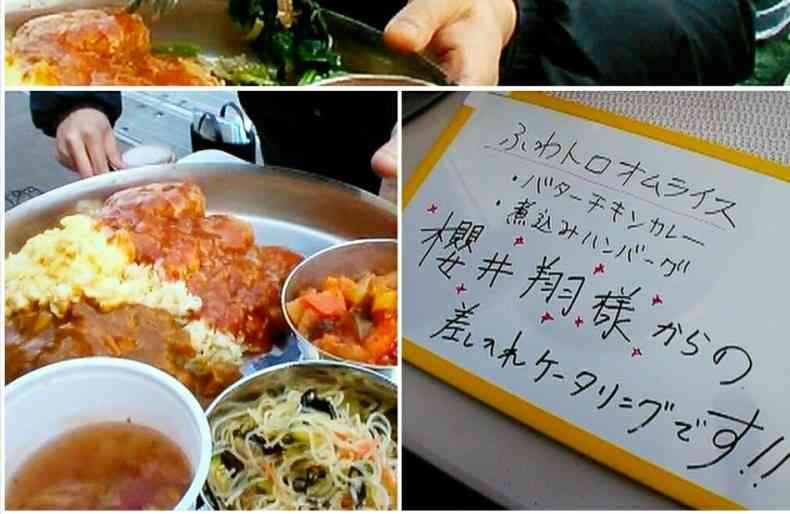 ふわトロオムライス
・バターチキンカレー
・煮込みハンバーグ
櫻井翔様からの
差し入れケータリングです!!